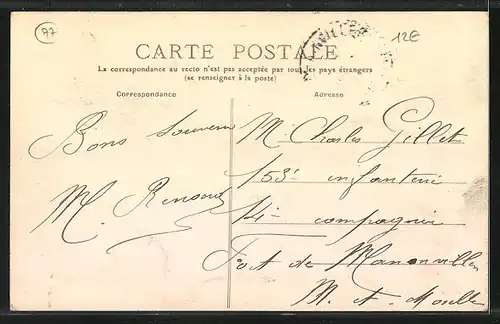 77
12€
CARTE POSTALE
La correspondance au recto n'est pas acceptée par tous les pays étrangers
(se renseigner à la poste)
Correspondance
Adresse
Bons Souvenirs
M. Renaud
M. Charles Gillet
153e infanterie
14e compagnie
Fort de Manonviller
M. et Moselle